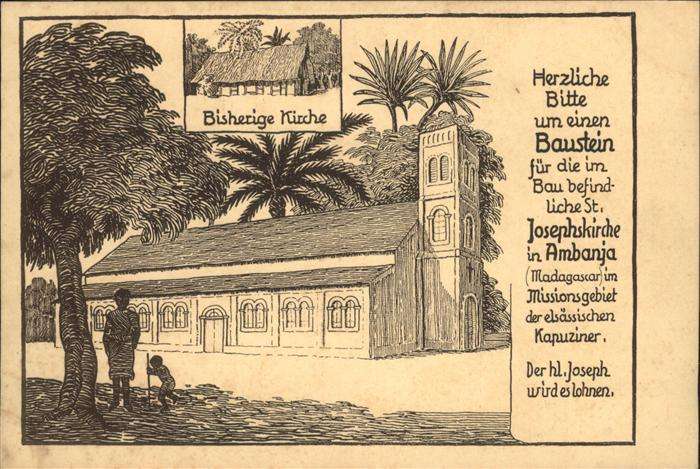 Bisherige Kirche
Herzliche
Bitte
um einen
Baustein
für die im
Bau befind-
liche St.
Josephskirche
in Ambanja
(Madagascar) im
Missionsgebiet
der elsässischen
Kapuziner.
Der hl. Joseph
wird es lohnen.